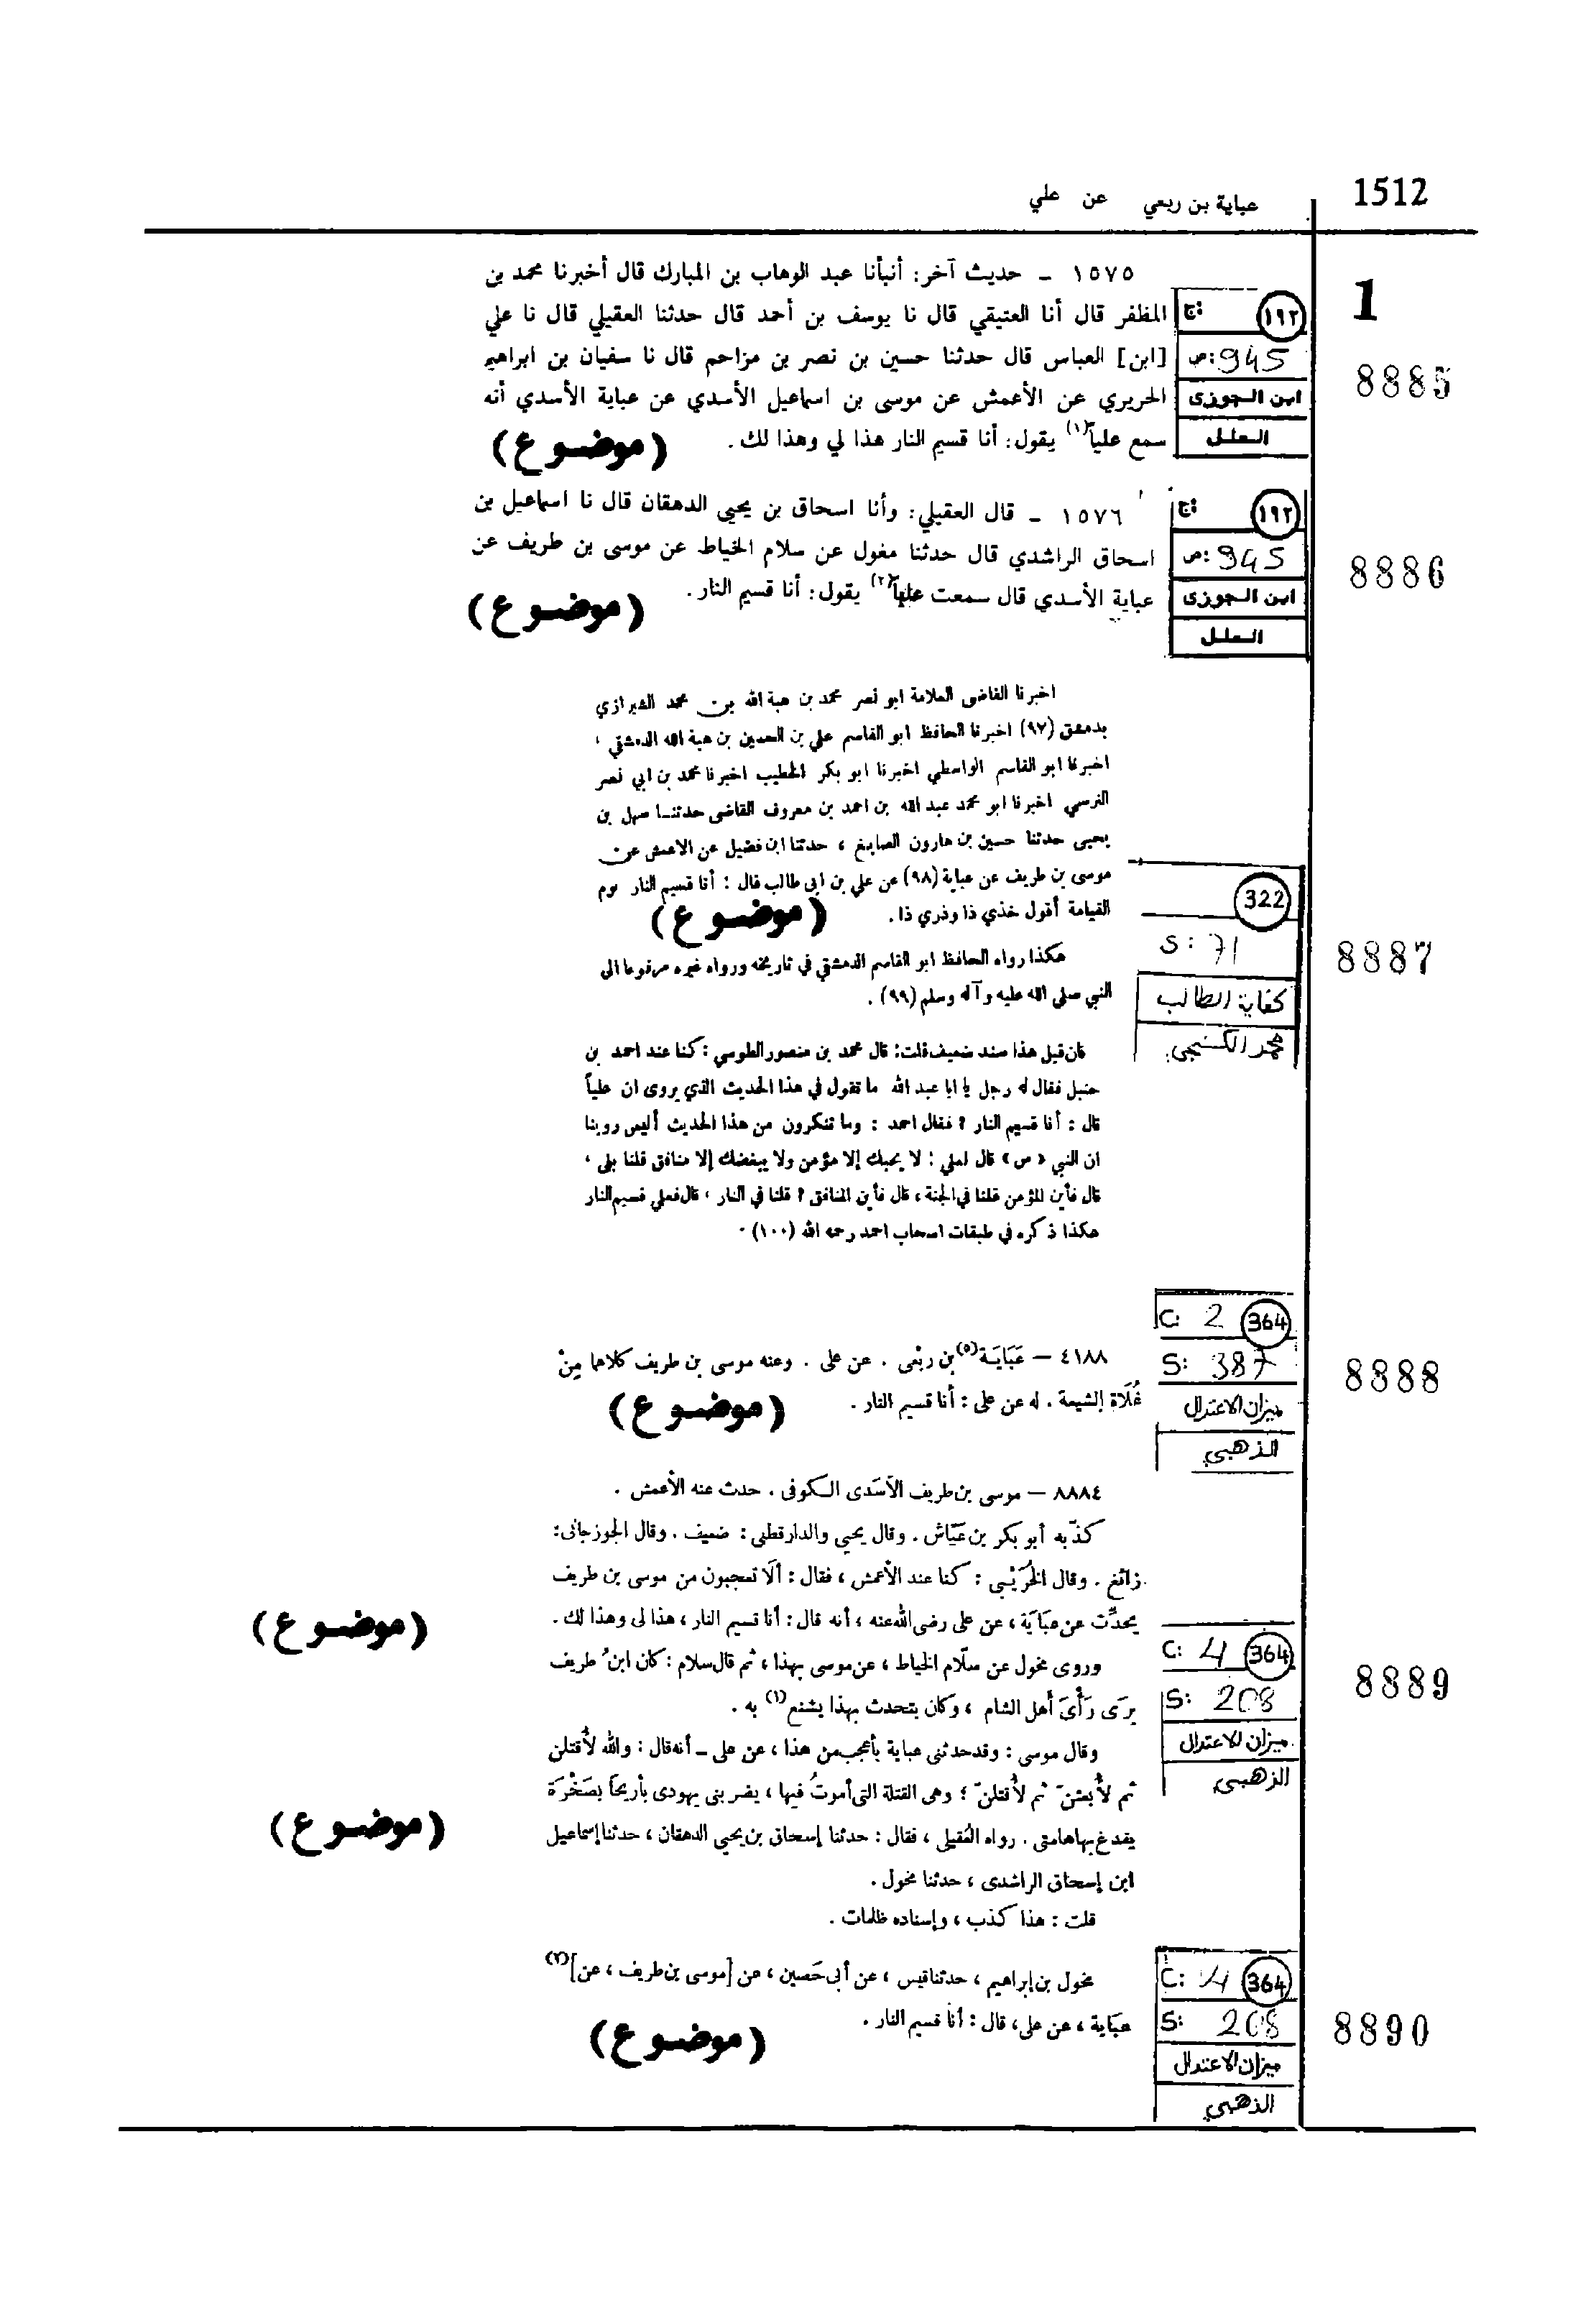 عباية بن ربعي عن علي
1512
١٥٧٥ - حديث آخر: أنبأنا عبد الوهاب بن المبارك قال أخبرنا محمد بن
المظفر قال أنا العتيقي قال نا يوسف بن أحمد قال حدثنا العقيلي قال نا علي
[ابن] العباس قال حدثنا حسين بن نصر بن مزاحم قال نا سفيان بن ابراهيم
الحريري عن الأعمش عن موسى بن اسماعيل الأسدي عن عباية الأسدي أنه
سمع علياً(١) يقول: أنا قسيم النار هذا لي وهذا لك.
(موضوع)
ج: ١٩٢
ص: 945
ابن الجوزى
العلل
1
8885
١٥٧٦ - قال العقيلي: وأنا اسحاق بن يحيى الدهقان قال نا اسماعيل بن
اسحاق الراشدي قال حدثنا مغول عن سلام الخياط عن موسى بن طريف عن
عباية الأسدي قال سمعت علياً(٢) يقول: أنا قسيم النار.
(موضوع)
ج: ١٩٢
ص: 945
ابن الجوزى
العلل
8886
اخبرنا القاضى العلامة ابو نصر محمد بن هبة الله بن محمد الشيرازي
بدمشق (٩٧) اخبرنا الحافظ ابو القاسم علي بن الحسين بن هبة الله الدمشقي ،
اخبرنا ابو القاسم الواسطي اخبرنا ابو بكر الخطيب اخبرنا محمد بن ابي نصر
النرسي اخبرنا ابو محمد عبد الله بن احمد بن معروف القاضى حدثنا سهل بن
يحيى حدثنا حسين بن هارون الصايغ ، حدثنا ابن فضيل عن الاعمش عن
موسى بن طريف عن عباية (٩٨) عن علي بن ابى طالب قال : أنا قسيم النار يوم
القيامة أقول خذي ذا وذري ذا .
(موضوع)
هكذا رواه الحافظ ابو القاسم الدمشقي في تاريخه ورواه غيره مرفوعا الى
النبي صلى الله عليه وآله وسلم (٩٩) .
322
S: 71
كفاية الطالب
محمد الكنجي
8887
فان قيل هذا سند ضعيف قلت: قال محمد بن منصور الطوسي : كنا عند احمد بن
حنبل فقال له رجل يا ابا عبد الله ما تقول في هذا الحديث الذي يروى ان علياً
قال : أنا قسيم النار ? فقال احمد : وما تنكرون من هذا الحديث أليس روينا
ان النبي « ص » قال لعلي : لا يحبك إلا مؤمن ولا يبغضك إلا منافق قلنا بلى ،
قال فأين المؤمن قلنا في الجنة ، قال فأين المنافق ? قلنا في النار ، قال فعلي قسيم النار
هكذا ذكره في طبقات اصحاب احمد رحمه الله (١٠٠) .
٤١٨٨ — عَبَايَة(٥) بن ربْعى . عن على . وعنه موسى بن طريف كلاهما مِنْ
غُلَاة الشيعة . له عن على : أنا قسيم النار .
(موضوع)
C: 2 364
S: 387
ميزان الاعتدال
الذهبي
8888
٨٨٨٤ — موسى بن طريف الأسَدى الكوفى . حدث عنه الأعمش .
كذّبه أبو بكر بن عَيّاش . وقال يحيى والدارقطنى : ضعيف . وقال الجوزجانى:
زائغ . وقال الخُرَيْبى : كنا عند الأعمش ، فقال : ألَا تعجبون من موسى بن طريف
يحدِّث عن عبَايَة ، عن على رضى الله عنه ، أنه قال : أنا قسيم النار ، هذا لى وهذا لك .
(موضوع)
وروى مخول عن سلّام الخياط ، عن موسى بهذا ، ثم قال سلام : كان ابنُ طريف
يرَى رَأْىَ أهل الشام ، وكان يتحدث بهذا يشنع(١) به .
وقال موسى : وقد حدثنى عباية بأعجب من هذا ، عن على – أنه قال : والله لأُقتلن
ثم لأُبعثنّ ثم لأُقتلنّ ؛ وهى القتلة التى أموتُ فيها ، يضربنى يهودى بأريحَا بصَخْرَة
يفدغ بها هامتى . رواه العُقيلى ، فقال : حدثنا إسحاق بن يحيى الدهقان ، حدثنا إسماعيل
(موضوع)
ابن إسحاق الراشدى ، حدثنا مخول .
قلت : هذا كذب ، وإسناده ظلمات .
C: 4 364
S: 208
ميزان الاعتدال
الذهبي
8889
مخول بن إبراهيم ، حدثنا قيس ، عن أبى حَصين ، عن [موسى بن طريف ، عن](٢)
عبَاية ، عن على، قال : أنا قسيم النار .
(موضوع)
C: 4 364
S: 208
ميزان الاعتدال
الذهبي
8890